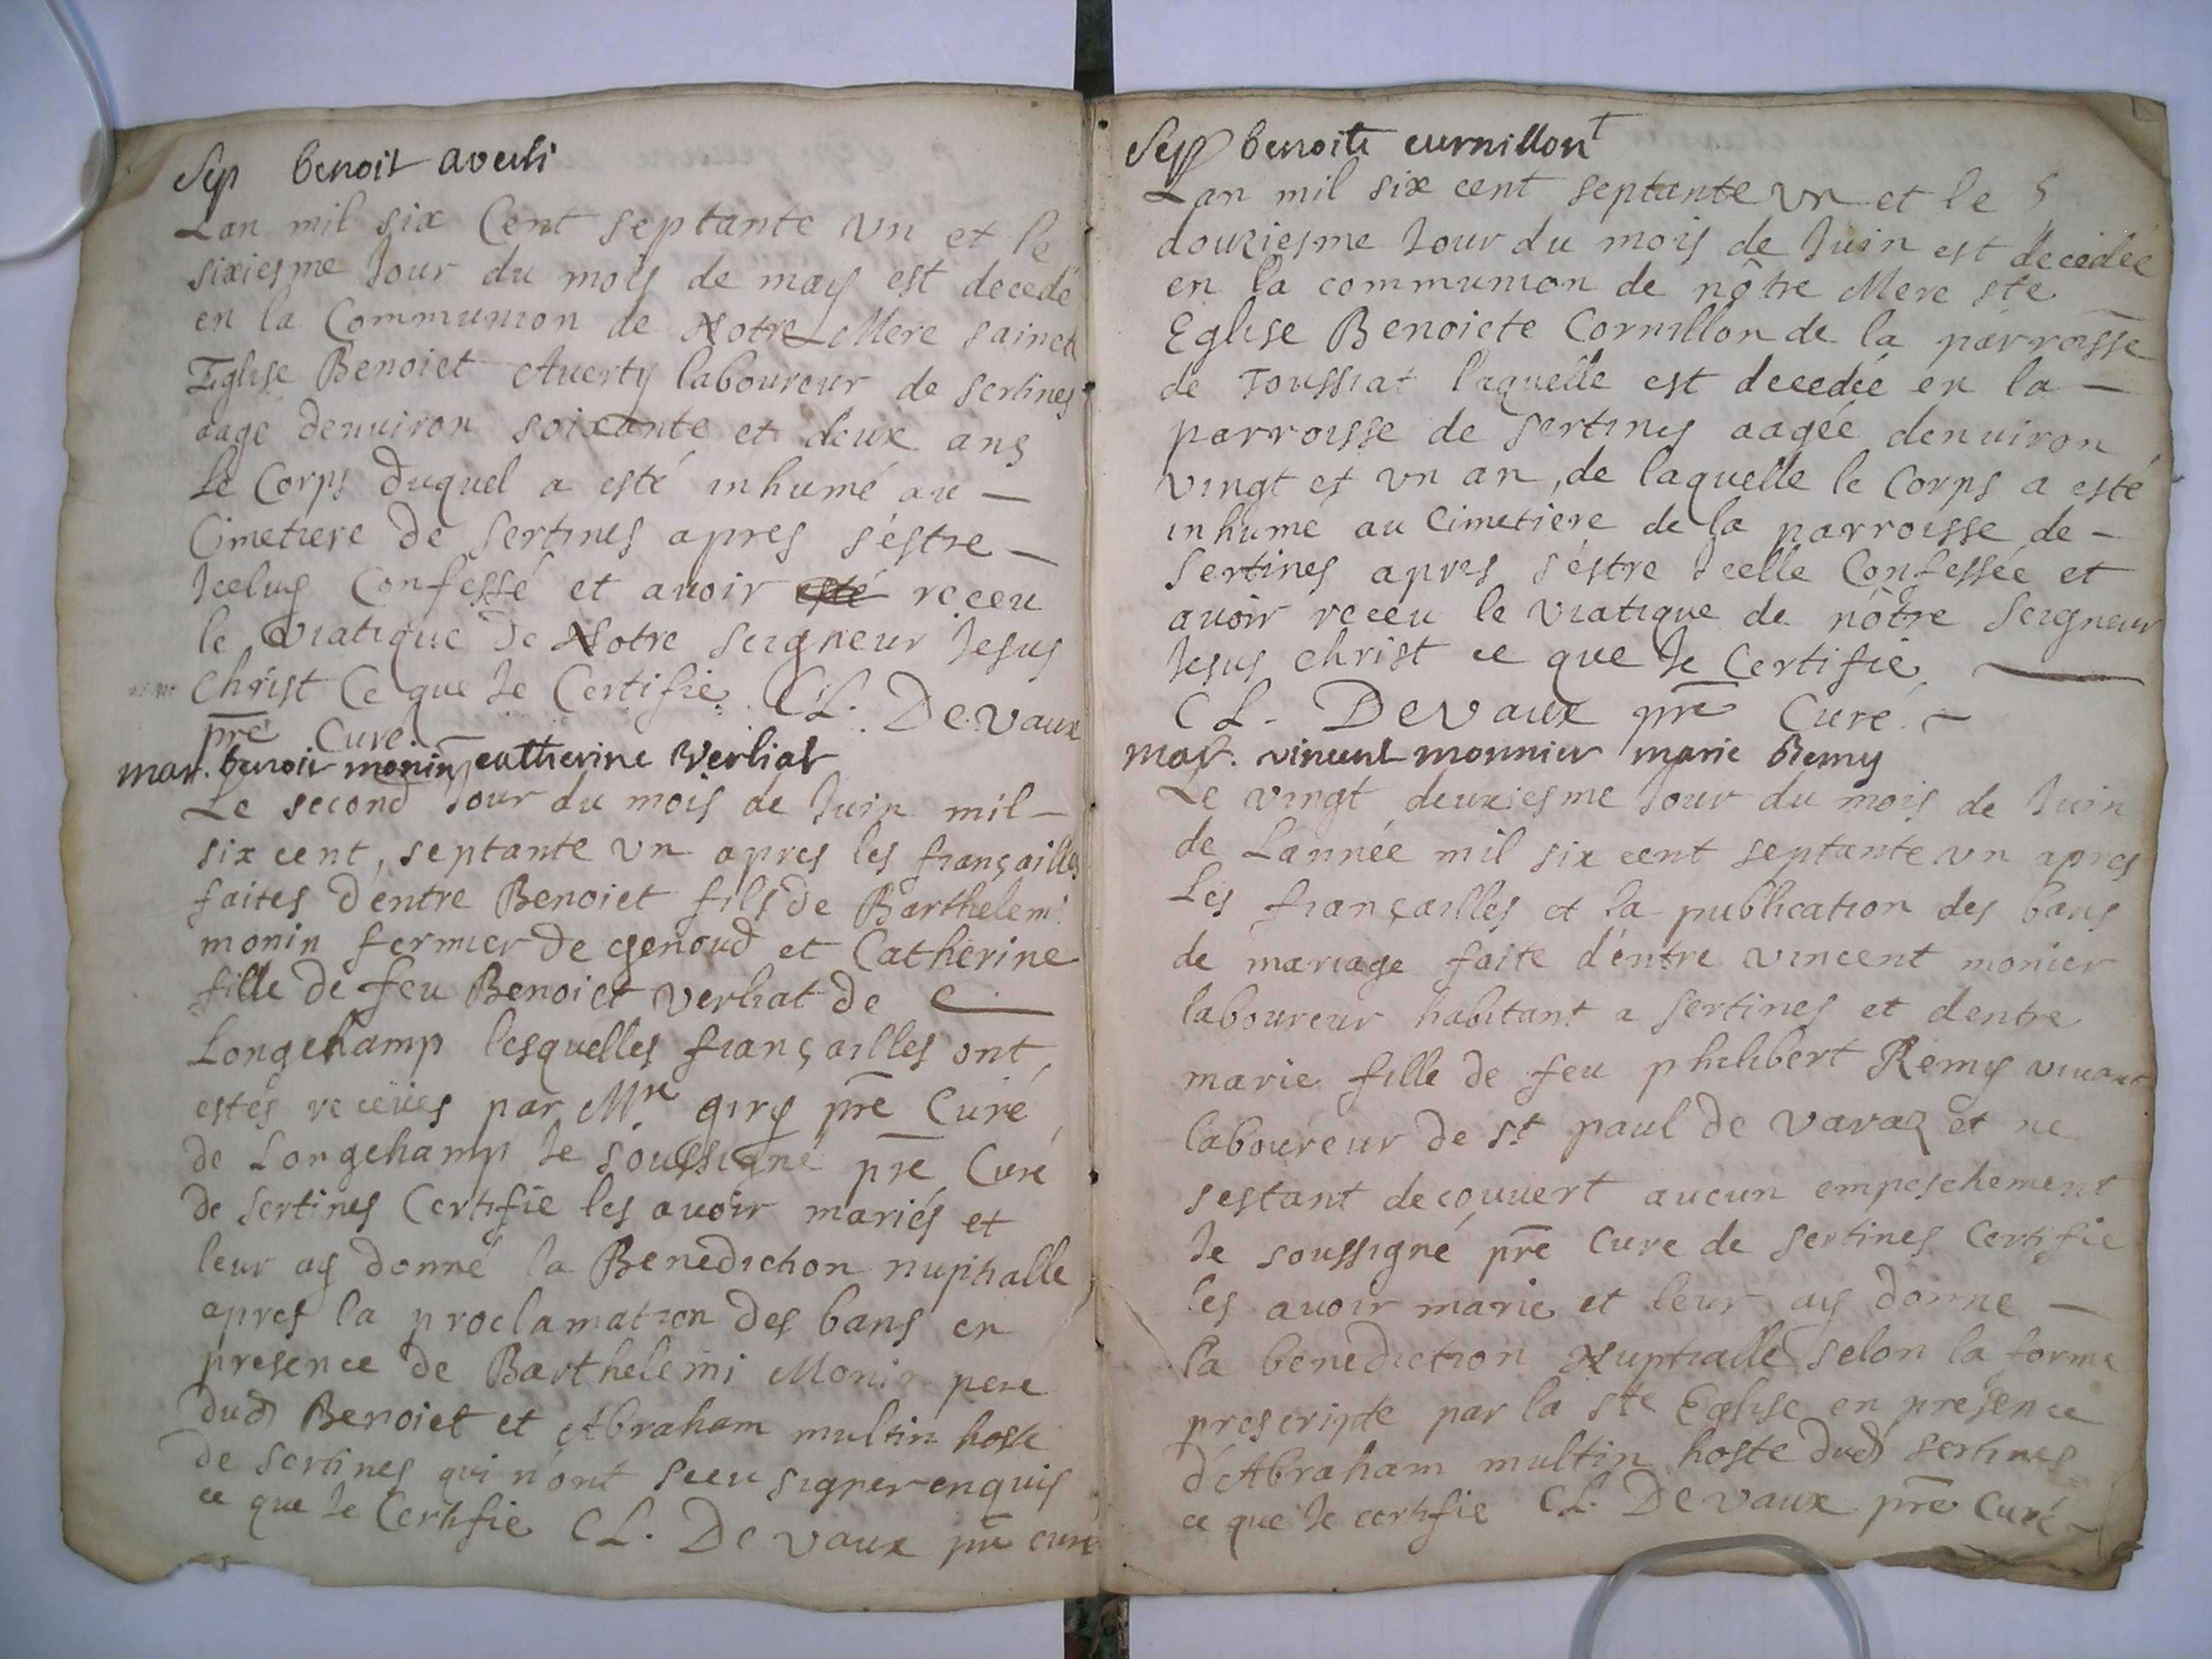 Sep benoit averli
Lan mil six Cent septante vn et le
sixiesme Jour du mois de may est decedé
en la Communion de Notre Mere saincte
Eglise Benoict Averty laboureur de sertines
aagé denuiron soixante et deux ans
Le Corps duquel a esté inhumé au —
Cimetiere de sertines apres s'éstre —
Jceluy Confessé et auoir esté receu
le viatique de Notre seigneur Jesus
Christ Ce que Je Certifie CL. De vaux
pre Curé
mar. benoit monin catherine Verliat
Le second Jour du mois de Juin mil —
six cent, septante vn apres les françailles
faites d'entre Benoict fils de Barthelemi
monin fermier de genoud et Catherine
fille de feu Benoict verliat de
Longchamp lesquelles françailles ont
estés receües par Mre giry pre Curé
de Longchamp Je soussigné pre Curé
de sertines Certifie les auoir mariés et
leur ay donné la Benediction nuptialle
apres la proclamation des bans en
presence de Barthelemi Monin pere
dud Benoict et Abraham multin hoste
de sertines qui n'ont sceu signer enquis
ce que Je Certifie CL. De vaux pre curé
Sep benoite curnillont
Lan mil six cent septante vn et le
douziesme Jour du mois de Juin est decedée
en la communion de nôtre Mere ste
Eglise Benoicte Cornillon de la parroisse
de Toussiat laquelle est decedée en la —
parroisse de sertines aagée denuiron
vingt et vn an, de laquelle le Corps a esté
inhumé au Cimetiere de la parroisse de —
Sertines apres s'éstre Jcelle Confessée et
auoir receu le viatique de nôtre seigneur
Jesus christ ce que Je Certifie
CL. De vaux pre Curé —
mar. vincent monnier marie Remy
Le vingt deuxiesme Jour du mois de Juin
de Lannée mil six cent septante vn apres
Les françailles et la publication des bans
de mariage faite d'entre vincent monier
laboureur habitant a sertines et dentre
marie fille de feu philibert Remy viuant
laboureur de st paul de varaz et ne
sestant decouuert aucun empeschement
Je soussigné pre Cure de sertines Certifie
les auoir marie et leur ay donne —
la benediction Nuptialle selon la forme
prescripte par la ste Eglise en presence
d'Abraham multin hoste dud sertines
ce que Je certifie CL. De vaux pre Curé —